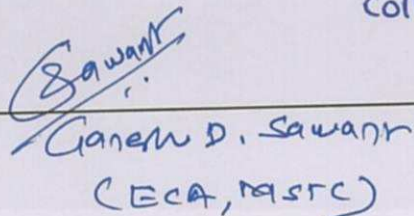 Col
Sawant
Ganesh D. Sawant
(ECA, MSTC)